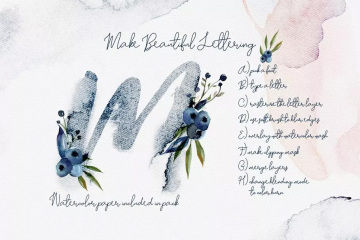 Make Beautiful Lettering
M
A) pick a font
B) type a letter
C) rasterise the letter layer
D) use soft brush to blur edges
E) overlay with watercolor mask
F) make clipping mask
G) merge layers
H) change blending mode
to color burn
Watercolor paper included in pack